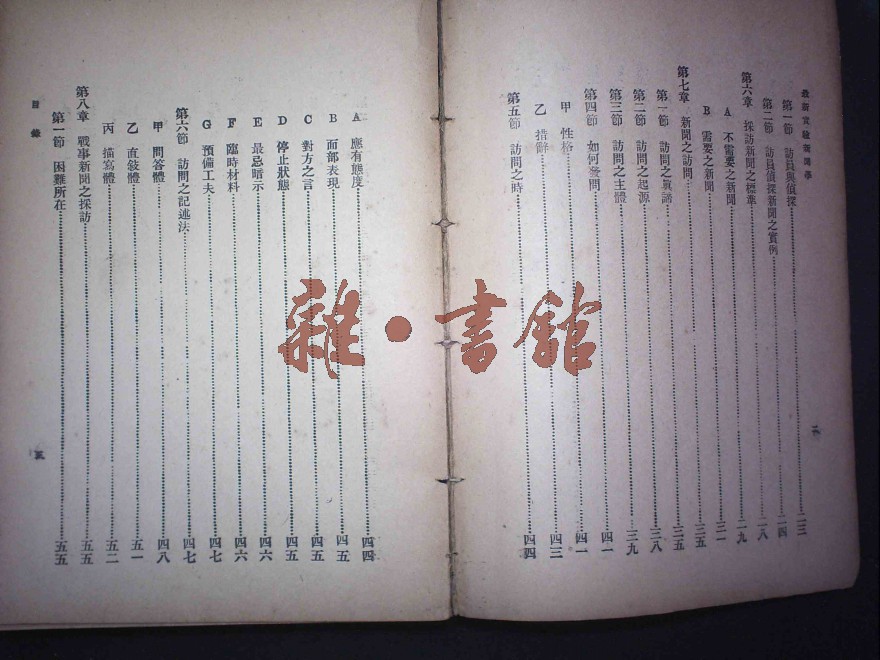 最新實驗新聞學
第一節　訪員與偵探……二三
第二節　訪員偵探新聞之實例……二四
第六章　採訪新聞之標準……二八
A　不需要之新聞……二九
B　需要之新聞……三一
第七章　新聞之訪問……三五
第一節　訪問之眞諦……三五
第二節　訪問之起源……三八
第三節　訪問之主體……三九
第四節　如何發問……四一
甲　性格……四一
乙　措辭……四三
第五節　訪問之時……四四
A　應有態度……四四
B　面部表現……四五
C　對方之言……四五
D　停止狀態……四五
E　最忌暗示……四六
F　臨時材料……四六
G　預備工夫……四七
第六節　訪問之記述法……四七
甲　問答體……四八
乙　直敍體……五一
丙　描寫體……五二
第八章　戰事新聞之採訪……五五
第一節　困難所在……五五
目錄
五
雜·書館